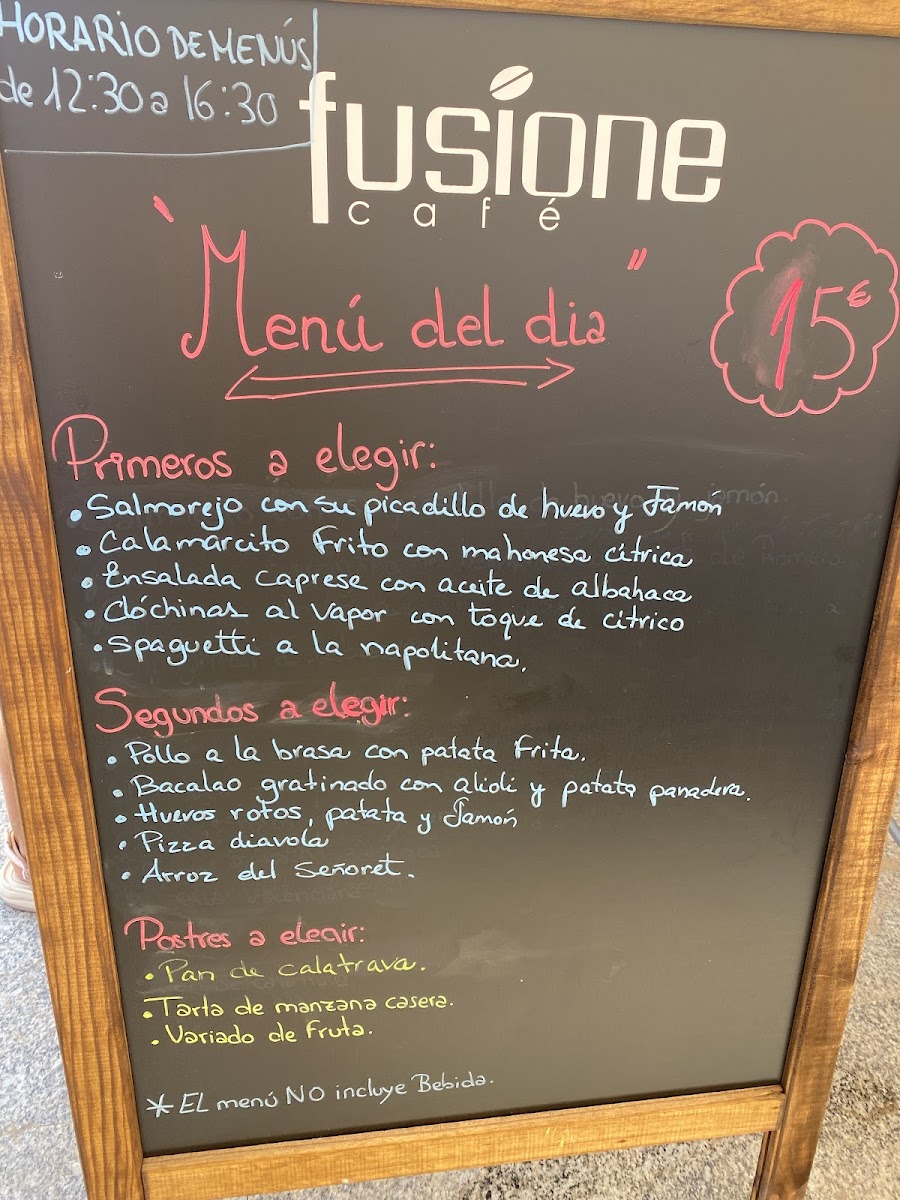 HORARIO DE MENÚS
de 12:30 a 16:30
fusione
café
"Menú del dia"
15€
Primeros a elegir:
• Salmorejo con su picadillo de huevo y Jamón
• Calamarcito frito con mahonesa cítrica
• Ensalada caprese con aceite de albahaca
• Clóchinas al vapor con toque de cítrico
• Spaguetti a la napolitana.
Segundos a elegir:
• Pollo a la brasa con patata frita.
• Bacalao gratinado con alioli y patata panadera.
• Huevos rotos, patata y Jamón
• Pizza diavola
• Arroz del Señoret.
Postres a elegir:
• Pan de calatrava.
• Tarta de manzana casera.
• Variado de fruta.
* EL menú NO incluye Bebida.